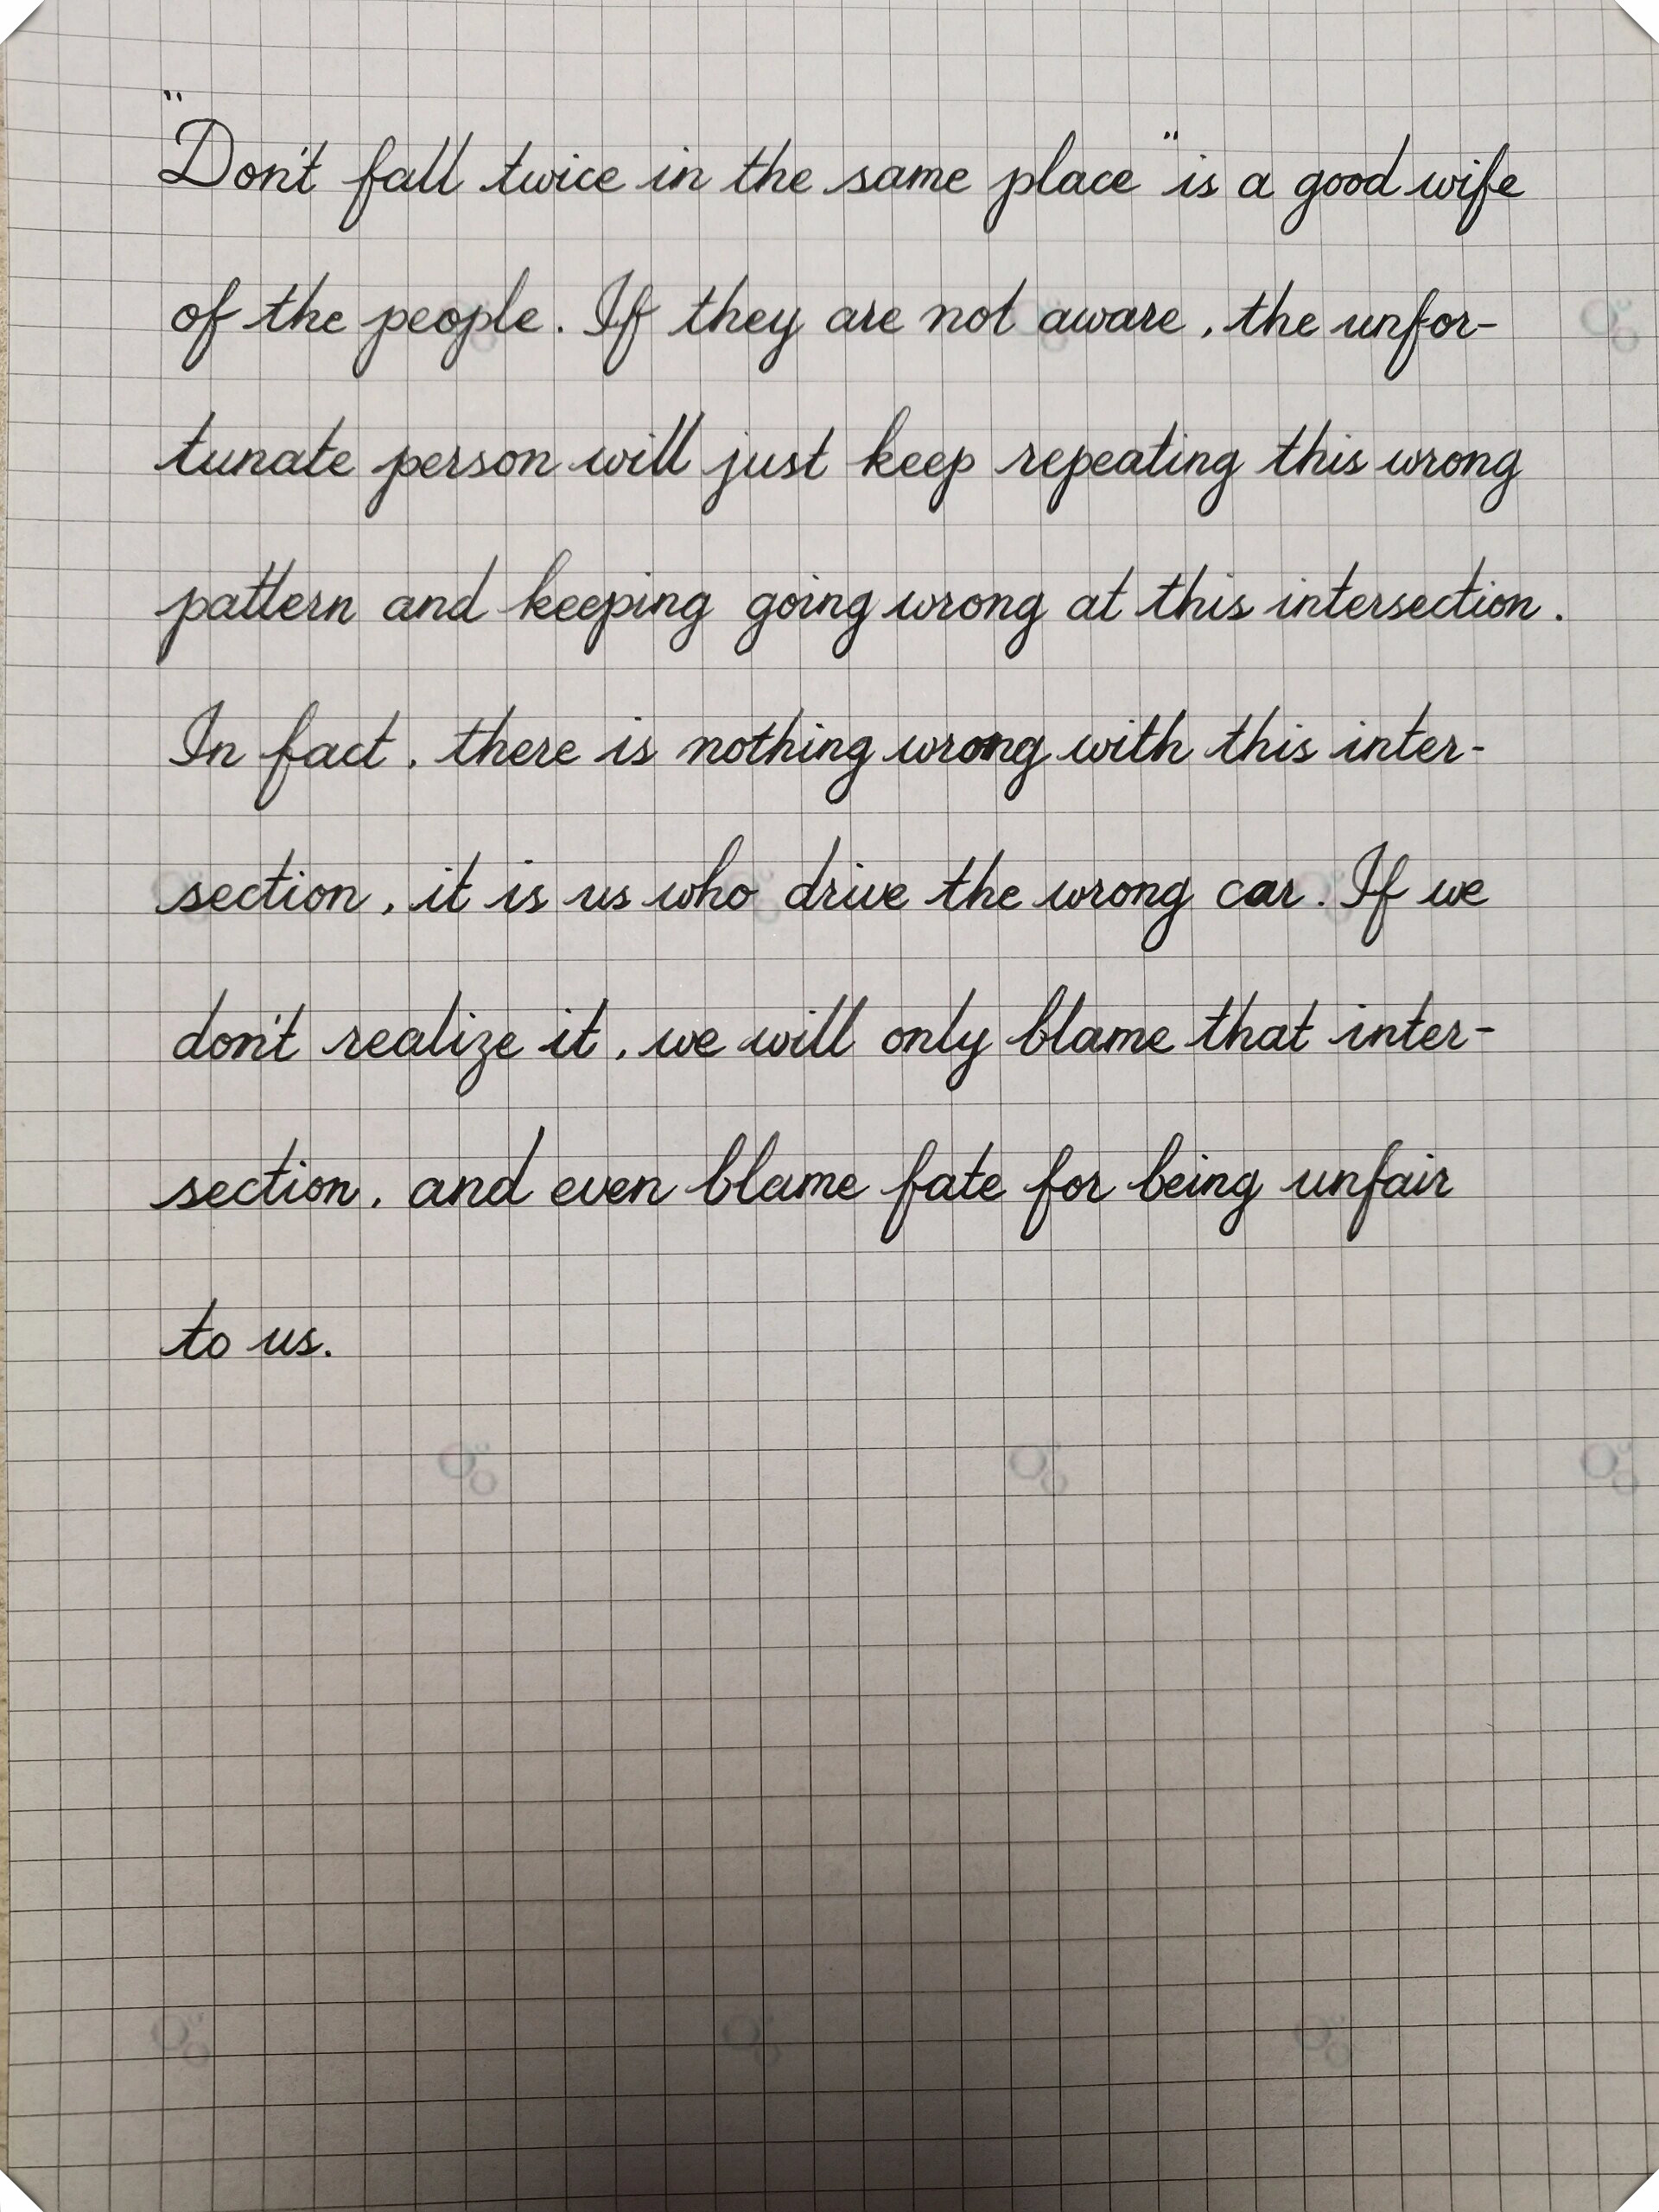 "Don't fall twice in the same place" is a good wife
of the people. If they are not aware, the unfor-
tunate person will just keep repeating this wrong
pattern and keeping going wrong at this intersection.
In fact, there is nothing wrong with this inter-
section, it is us who drive the wrong car. If we
don't realize it, we will only blame that inter-
section, and even blame fate for being unfair
to us.